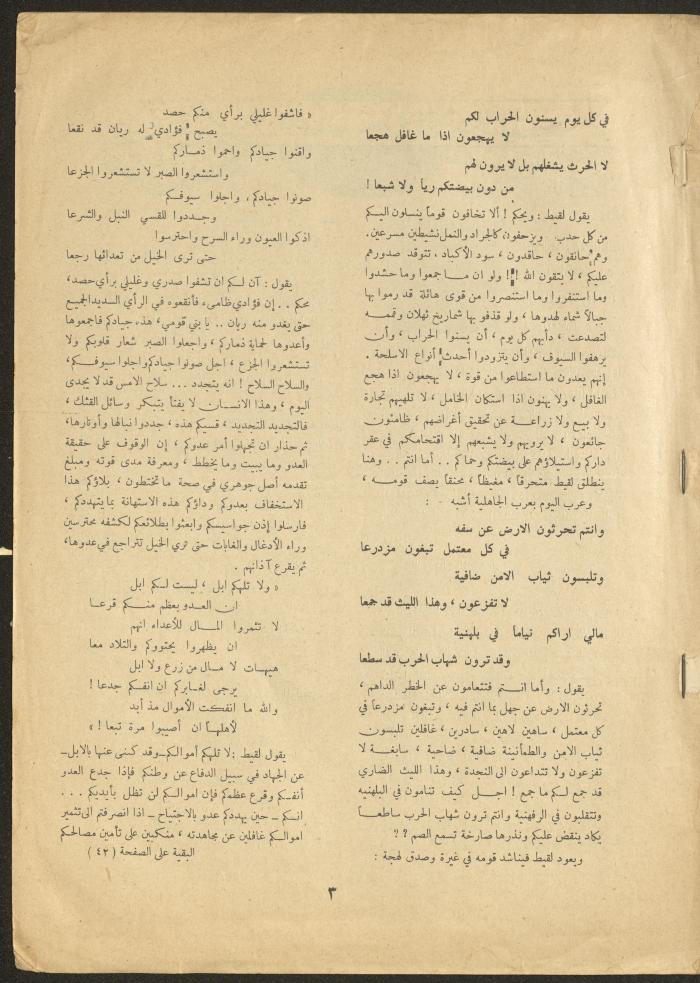 في كل يوم يسنون الحراب لكم
لا يهجعون اذا ما غافل هجعا
لا الحرث يشغلهم بل لا يرون لهم
من دون بيضتكم رياً ولا شبعا !
يقول لقيط : ويحكم ! ألا تخافون قوماً ينسلون اليكم
من كل حدب ويزحفون كالجراد والنمل نشيطين مسرعين .
وهم حانقون ، حاقدون ، سود الأكباد ، تتوقد صدورهم
عليكم ، لا يتقون الله !! ولو ان مـا جمعوا وما حشدوا
وما استنفروا وما استنصروا من قوى هائلة قد رموا بها
جبالاً شماء لهدوها ، ولو قذفو بها شماريخ ثهلان وقمـه
لتصدعت ، دأبهم كل يوم ، أن يسنوا الحراب ، وأن
يرهفوا السيوف ، وأن يتزودوا أحدث أنواع الاسلحة .
إنهم يعدون ما استطاعوا من قوة ، لا يهجعون اذا هجع
الغافل ، ولا يهنون اذا استكان الخامل ، لا تلهيهم تجارة
ولا بيع ولا زراعـة عن تحقيق أغراضهم ، ظامئون
جائعون ، لا يرويهم ولا يشبعهم إلا اقتحامكم في عقر
داركم واستيلاؤهم على بيضتكم وحماكم .. أما انتم .. وهنا
ينطلق لقيط متحرقاً ، مغيظاً ، محنقاً يصف قومـه ،
وعرب اليوم بعرب الجاهلية أشبه :
وانتم تحرثون الارض عن سفه
في كل معتمل تبغون مزدرعا
وتلبسون ثياب الامن ضافية
لا تفزعون ، وهذا الليث قد جمعا
مالي اراكم نياماً في بلهنية
وقد ترون شهاب الحرب قد سطعا
يقول : وأما انـتم فتتعامون عن الخطر الداهم ،
تحرثون الارض عن جهل بما انتم فيه ، وتبغون مزدرعاً في
كل معتمل ، ساهين لاهين ، سادرين ، غافلين تلبسون
ثياب الامن والطمأنينة ضافية ، ضاحية ، سابغـة لا
تفزعون ولا تتداعون الى النجدة ، وهذا الليث الضاري
قد جمع لكم ما جمع ! اجـل كيف تنامون في البلهنيه
وتتقلبون في الرفهنية وانتم ترون شهاب الحرب ساطعـاً
يكاد ينقض عليكم ونذرها صارخة تسمع الصم ؟ ؟
ويعود لقيط فيناشد قومه في غيرة وصدق لهجة :
« فاشفوا غليلي برأي منكم حصد
يصبح فؤادي له ريان قد نقعا
واقنوا جيادكم واحموا ذمـاركم
واستشعروا الصبر لا تستشعروا الجزعا
صونوا جيادكم ، واجلوا سيوفـكم
وجـددوا للقسي النبل والشرعا
اذكوا العيون وراء السرح واحترسوا
حتى ترى الخيل من تعدائها رجعا
يقول : آن لـكم ان تشفوا صدري وغليلي برأي حصد ،
محكم . . إن فؤادي ظامىء فأنقعوه في الرأي السديد الجميع
حتى يغدو منه ريان .. يا بني قومي ، هذه جيادكم فاجمعوها
وأعدوها لحماية ذماركم ، واجعلوا الصبر شعار قلوبكم ولا
تستشعروا الجزع ، اجل صونوا جيادكم واجلوا سيوفـكم ،
والسلاح السلاح ! انه يتجدد ... سلاح الامس قد لا يجدى
اليوم ، وهذا الانسـان لا يفتأ يبتكر وسائل الفتك ،
فالتجديد التجديد ، قسيكم هذه ، جددوا نبالها وأوتارها ،
ثم حذار ان تجهلوا أمر عدوكم ، إن الوقوف على حقيقة
العدو وما يبيت وما يخطط ، ومعرفة مدى قوته ومبلغ
تقدمه أصل جوهري في صحة ما تختطون ، بلاؤكم هذا
الاستخفاف بعدوكم وداؤكم هذه الاستهانة بما يتهددكم ،
فارسلوا إذن جواسيسكم وابعثوا بطلائعكم لكشفه محترسين
وراء الأدغال والغابات حتى ترى الخيل تتراجع في عدوها ،
ثم يقرع آذانهم .
« ولا تلهكم ابل ، ليست لكم ابل
ان العـدو بعظم منـكم قرعـا
لا تثمروا المـال للأعداء انهم
ان يظهروا يحتووكم والتلاد معا
هيهات لا مـال من زرع ولا ابل
يرجى لغـابركم ان انفـكم جدعا !
والله ما انفكت الأموال مذ أبد
لأهلها ان أصيبوا مرة تبعا ! »
يقول لقيط : لا تلهكم أموالكم ـ وقد كنى عنها بالابل ـ
عن الجهاد في سبيل الدفاع عن وطنكم فإذا جدع العدو
أنفـكم وقرع عظمكم فإن اموالـكم لن تظل بأيديكم . . .
إنـكم ـ حين يهددكم عدو بالاجتياح ـ اذا انصرفتم الى تثمير
اموالـكم غافلين عن مجاهدته ، منكبين على تأمين مصالحكم
البقية على الصفحة ( ٤٣ )
٣